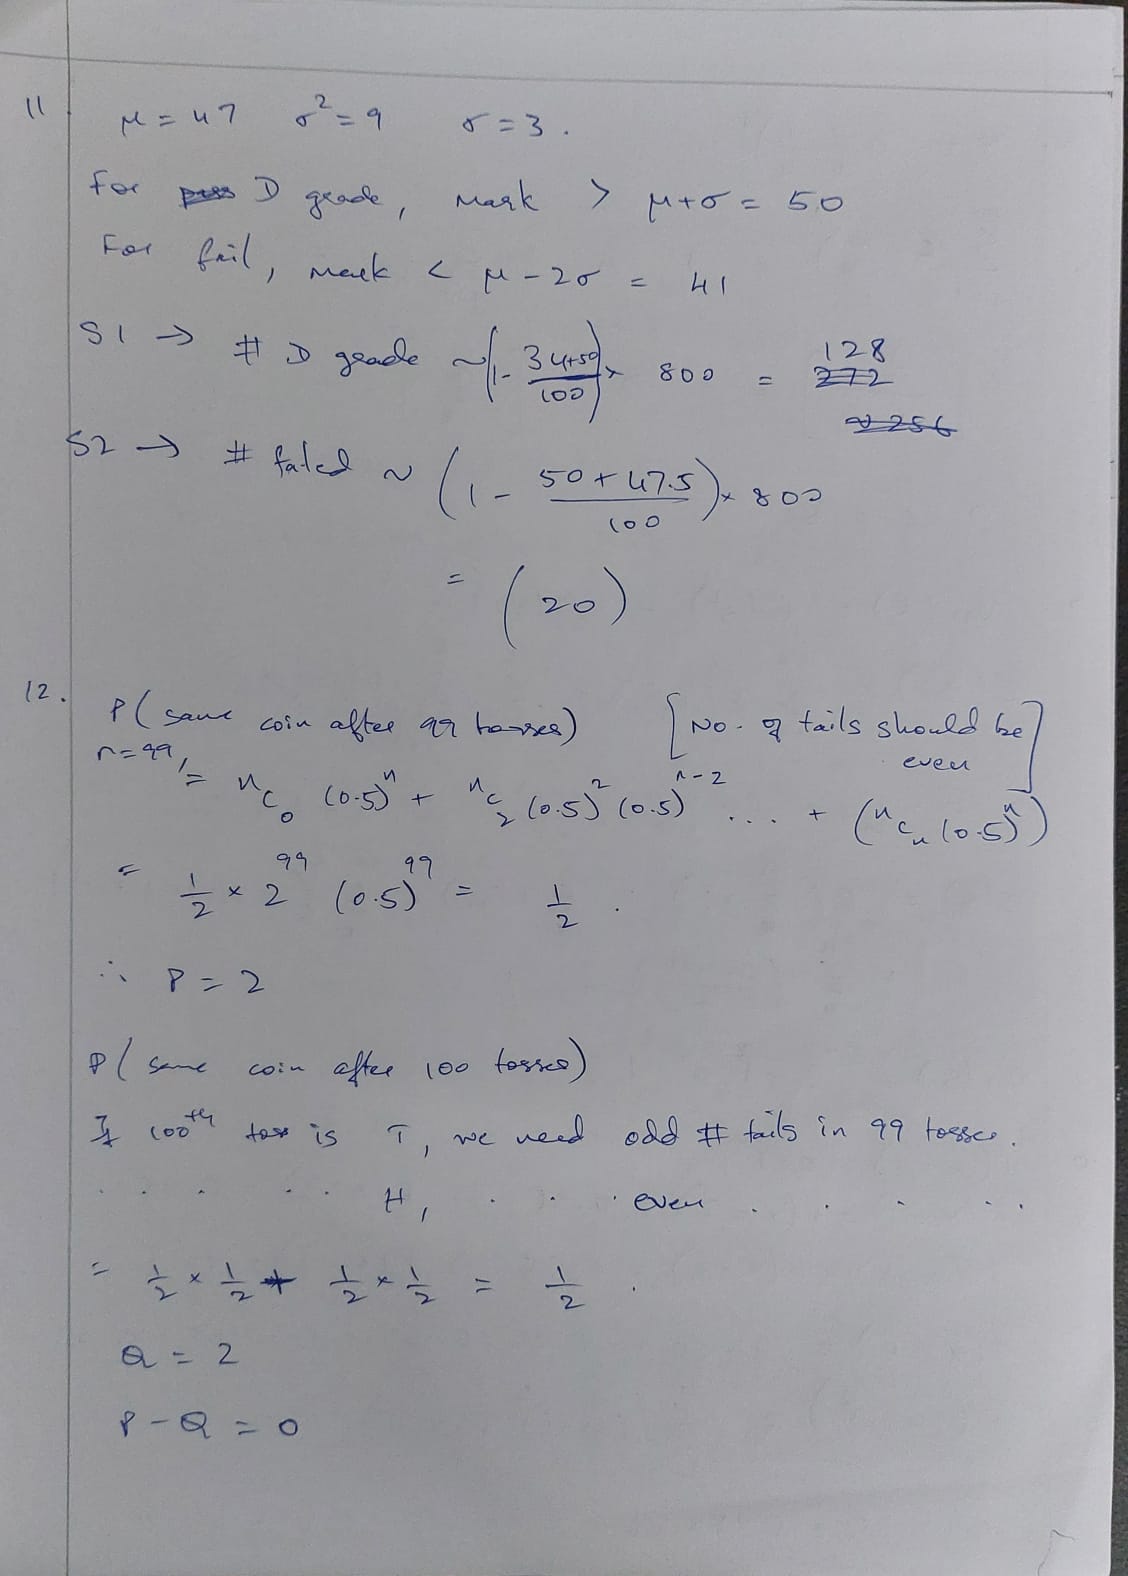 11 μ = 47 σ² = 9 σ = 3.
For pass D grade, Mark > μ+σ = 50
For fail, mark < μ - 2σ = 41
S1 → # D grade ~ (1 - (34+50)/100) × 800 = 272 128
≈ 256
S2 → # failed ~ (1 - (50+47.5)/100) × 800
= (20)
12. P(same coin after 99 tosses) [No. of tails should be even]
n=99, = ⁿC₀ (0.5)ⁿ + ⁿC₂ (0.5)² (0.5)ⁿ⁻² ... + (ⁿCₙ (0.5)ⁿ)
= 1/2 × 2⁹⁹ (0.5)⁹⁹ = 1/2.
∴ P = 2
P(same coin after 100 tosses)
If 100th toss is T, we need odd # tails in 99 tosses.
. . . . . H, . . . even . . . . .
= 1/2 × 1/2 + 1/2 × 1/2 = 1/2.
Q = 2
P - Q = 0